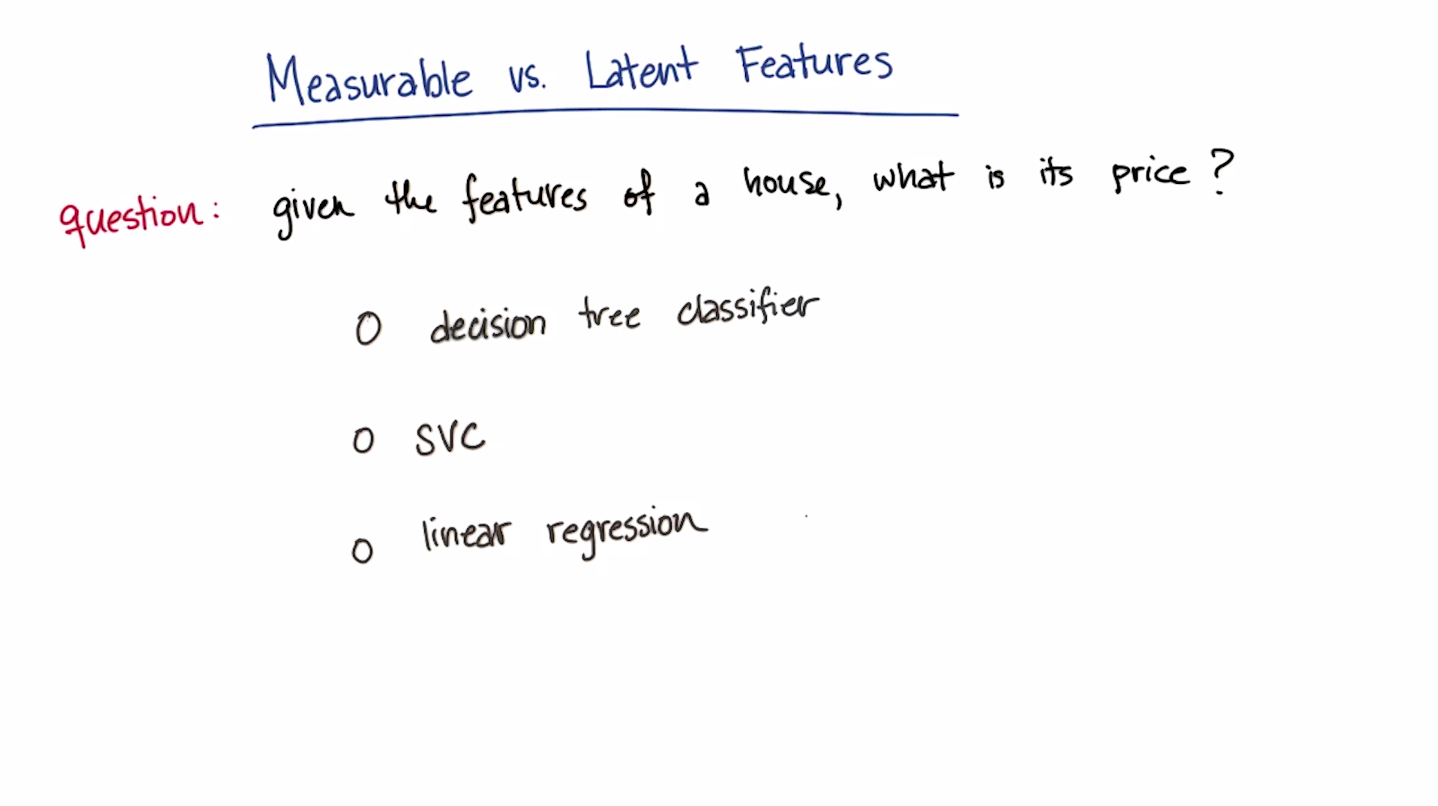 Measurable vs. Latent Features
question: given the features of a house, what is its price?
O decision tree classifier
O SVC
O linear regression